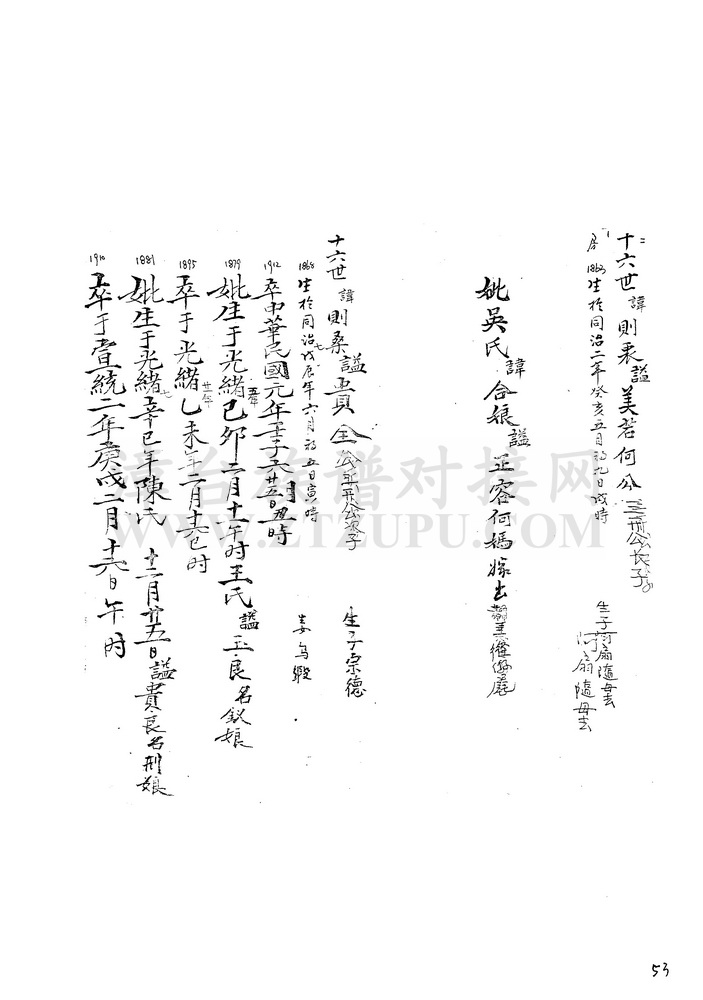 十六世 諱 則秉 謚 美若何公 三开公长子
1863 生於同治二年癸亥五月初九日戌時
生子阿扇隨母去
阿扇隨母去
妣吳氏 諱 合娘 謚 正容何媽嫁出
十六世 諱 則桑 謚 貴全 公三开公次子
1868 生於同治七戊辰年六月初五日寅時
生子宗德
1912 卒中華民國元年壬子六廿五日丑時
1879 妣生于光緒五年己卯二月十一午时王氏 謚 玉良名釵娘
1895 卒于光緒廿一年乙未年二月十六巳时
1881 妣生于光緒七辛巳年陳氏 十二月廿五日 謚貴良名刑娘
1910 卒于宣統二年庚戌二月十六日午时
漳台族谱对接网
WWW.ZTZUPU.COM
53